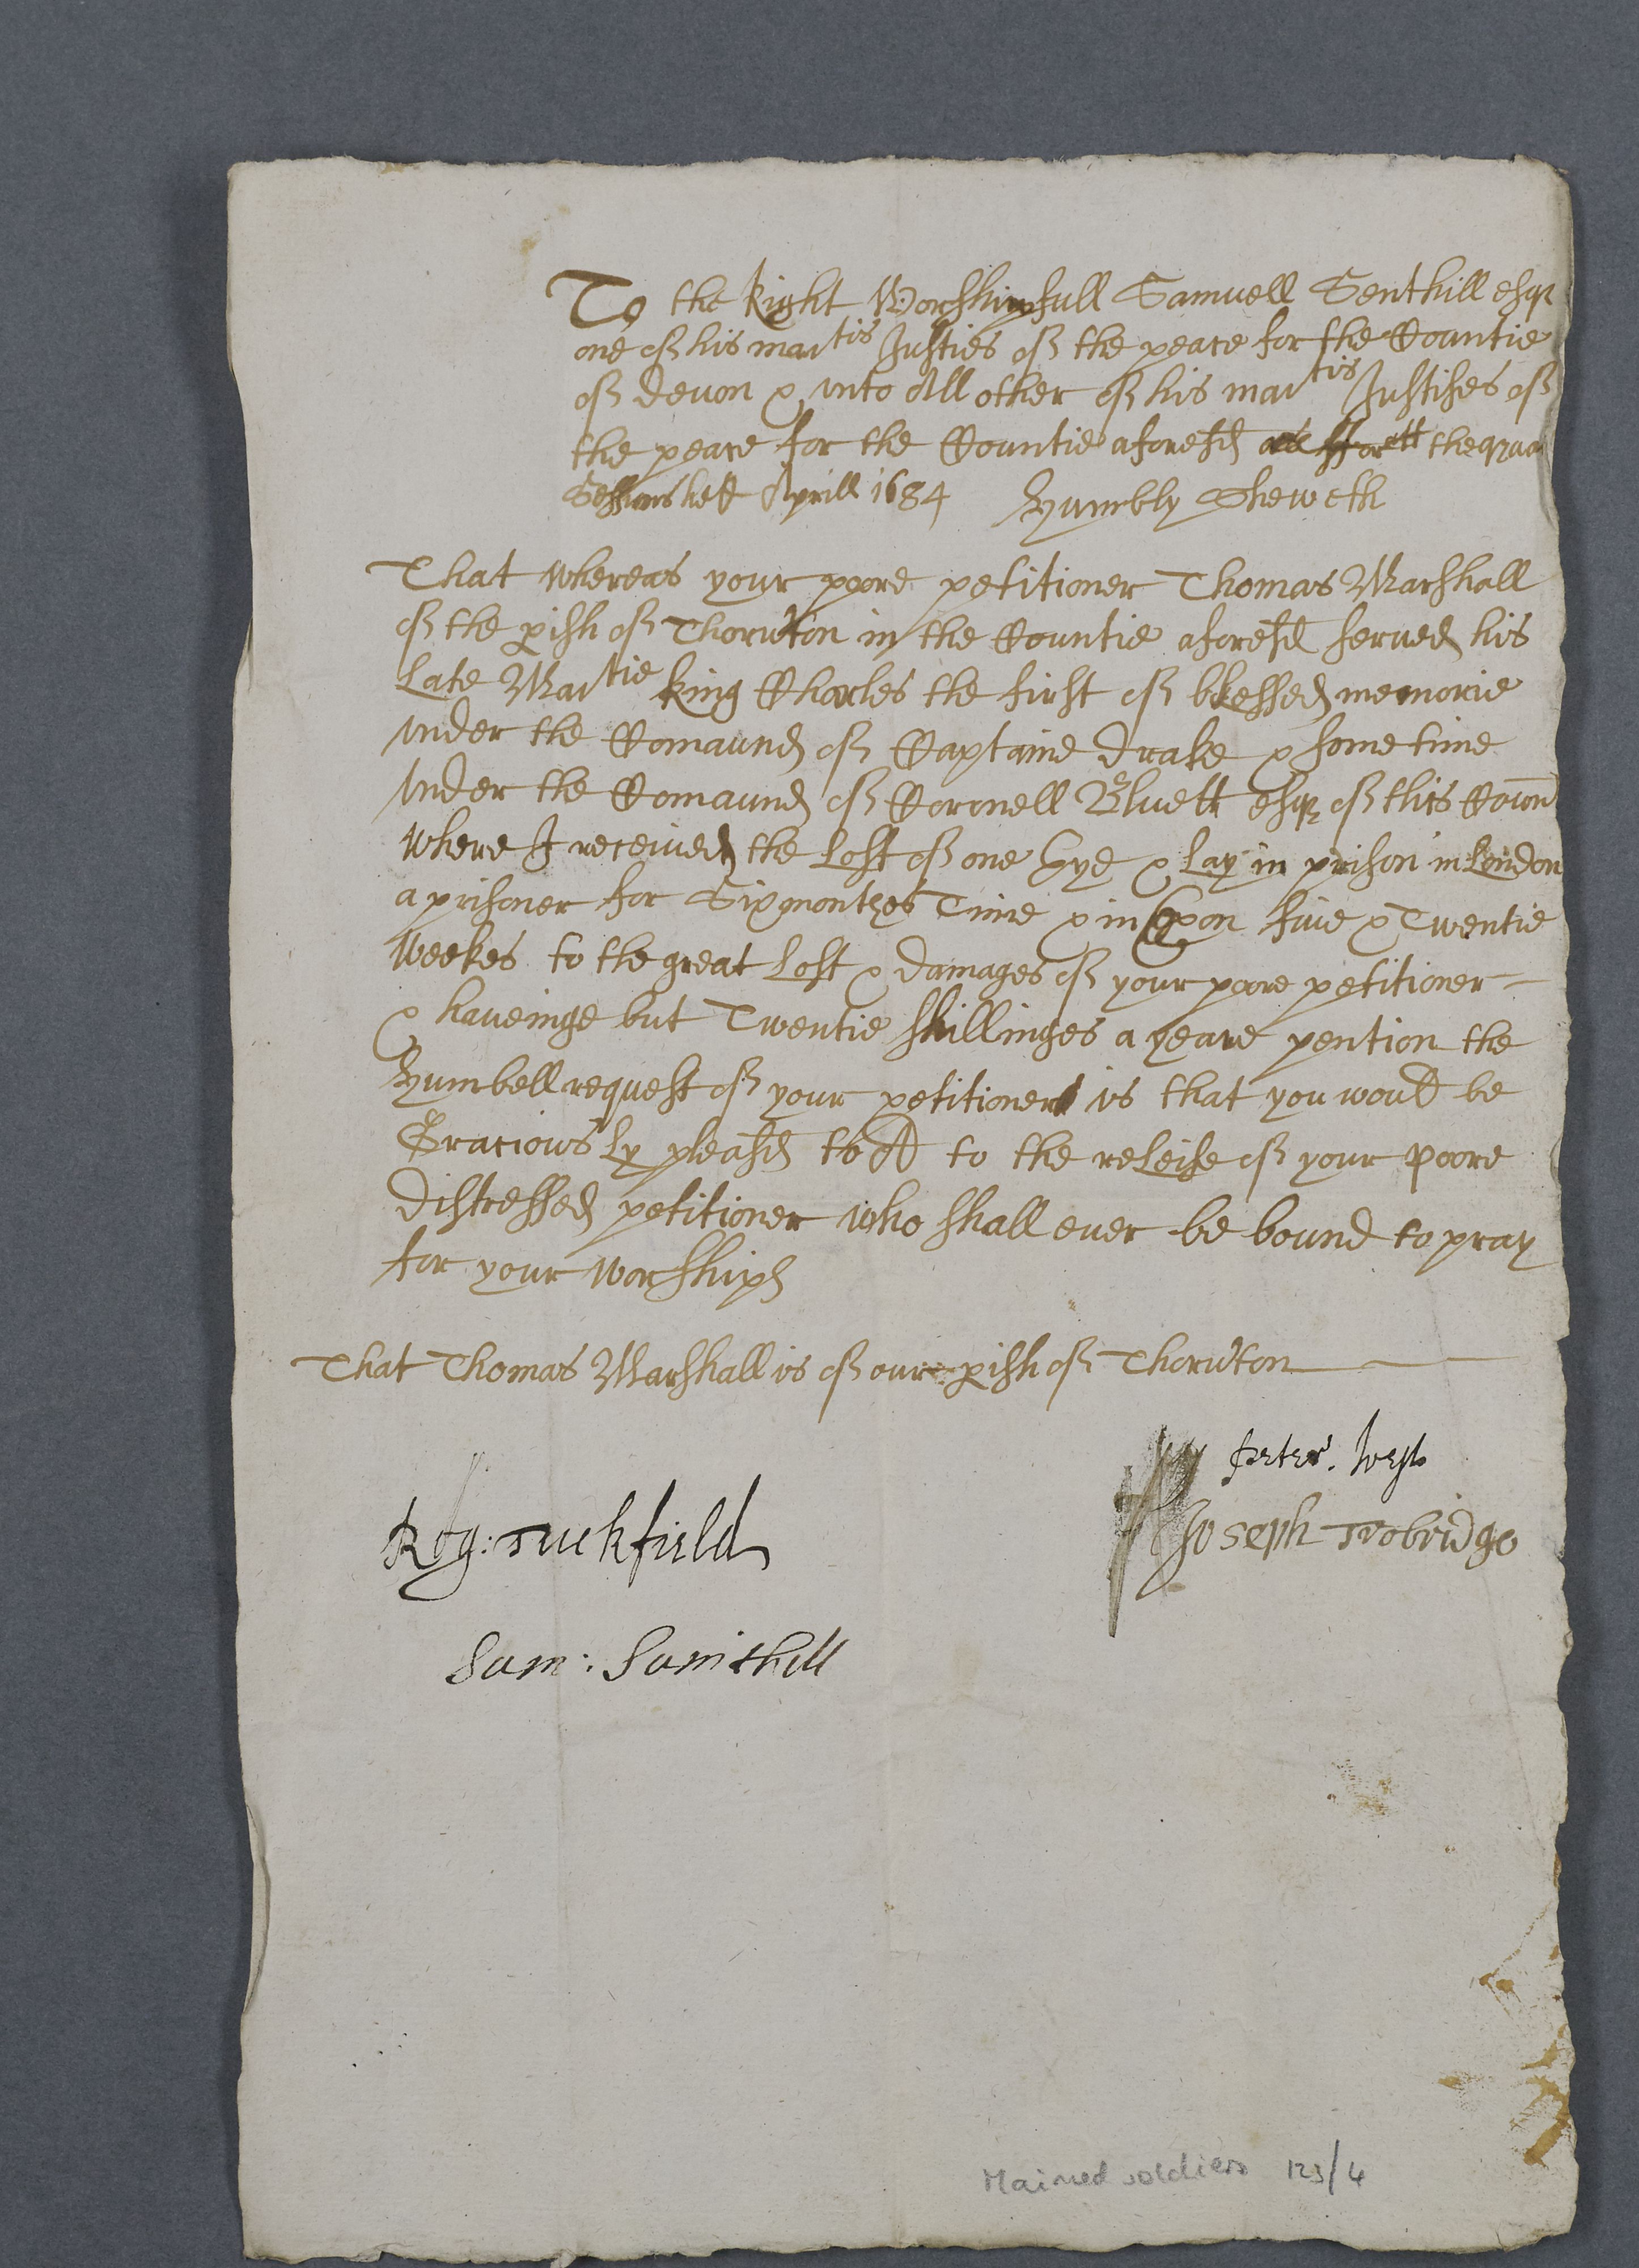 To the Right Worshipfull Samuell Senthill esqr
one of his maitis Justies of the peace for the Countie
of devon & unto All other of his maitis Justises of
the peace for the Countie aforesd the
Sessions held Aprill 1684 Humbly Sheweth
That whereas your poore petitioner Thomas Marshall
of the pish of Thornton in the Countie aforesd served his
Late Maitie King Charles the first of blessed memorie
under the Comaund of Captaine drake & some time
under the Comaund of Coronell Bluett esqr of this Coun
where I received the Lost of one Eye & Lay in prison in London
a prisoner for Six monthes Time & in Exon five & Twentie
weekes to the great Lost & damages of your poore petitioner
& haveinge but Twentie shillinges a yeare pention the
Humbell request of your petitioner is that you would be
Graciously pleasd to Ad to the releise of your poore
distressed petitioner who shall ever be bound to pray
for your worships
That Thomas Marshall is of our pish of Thornton
Peter. West
Rog: Tuckfield
Joseph Trobridge
Sam: Sainthill
Maimed soldiers 123/4